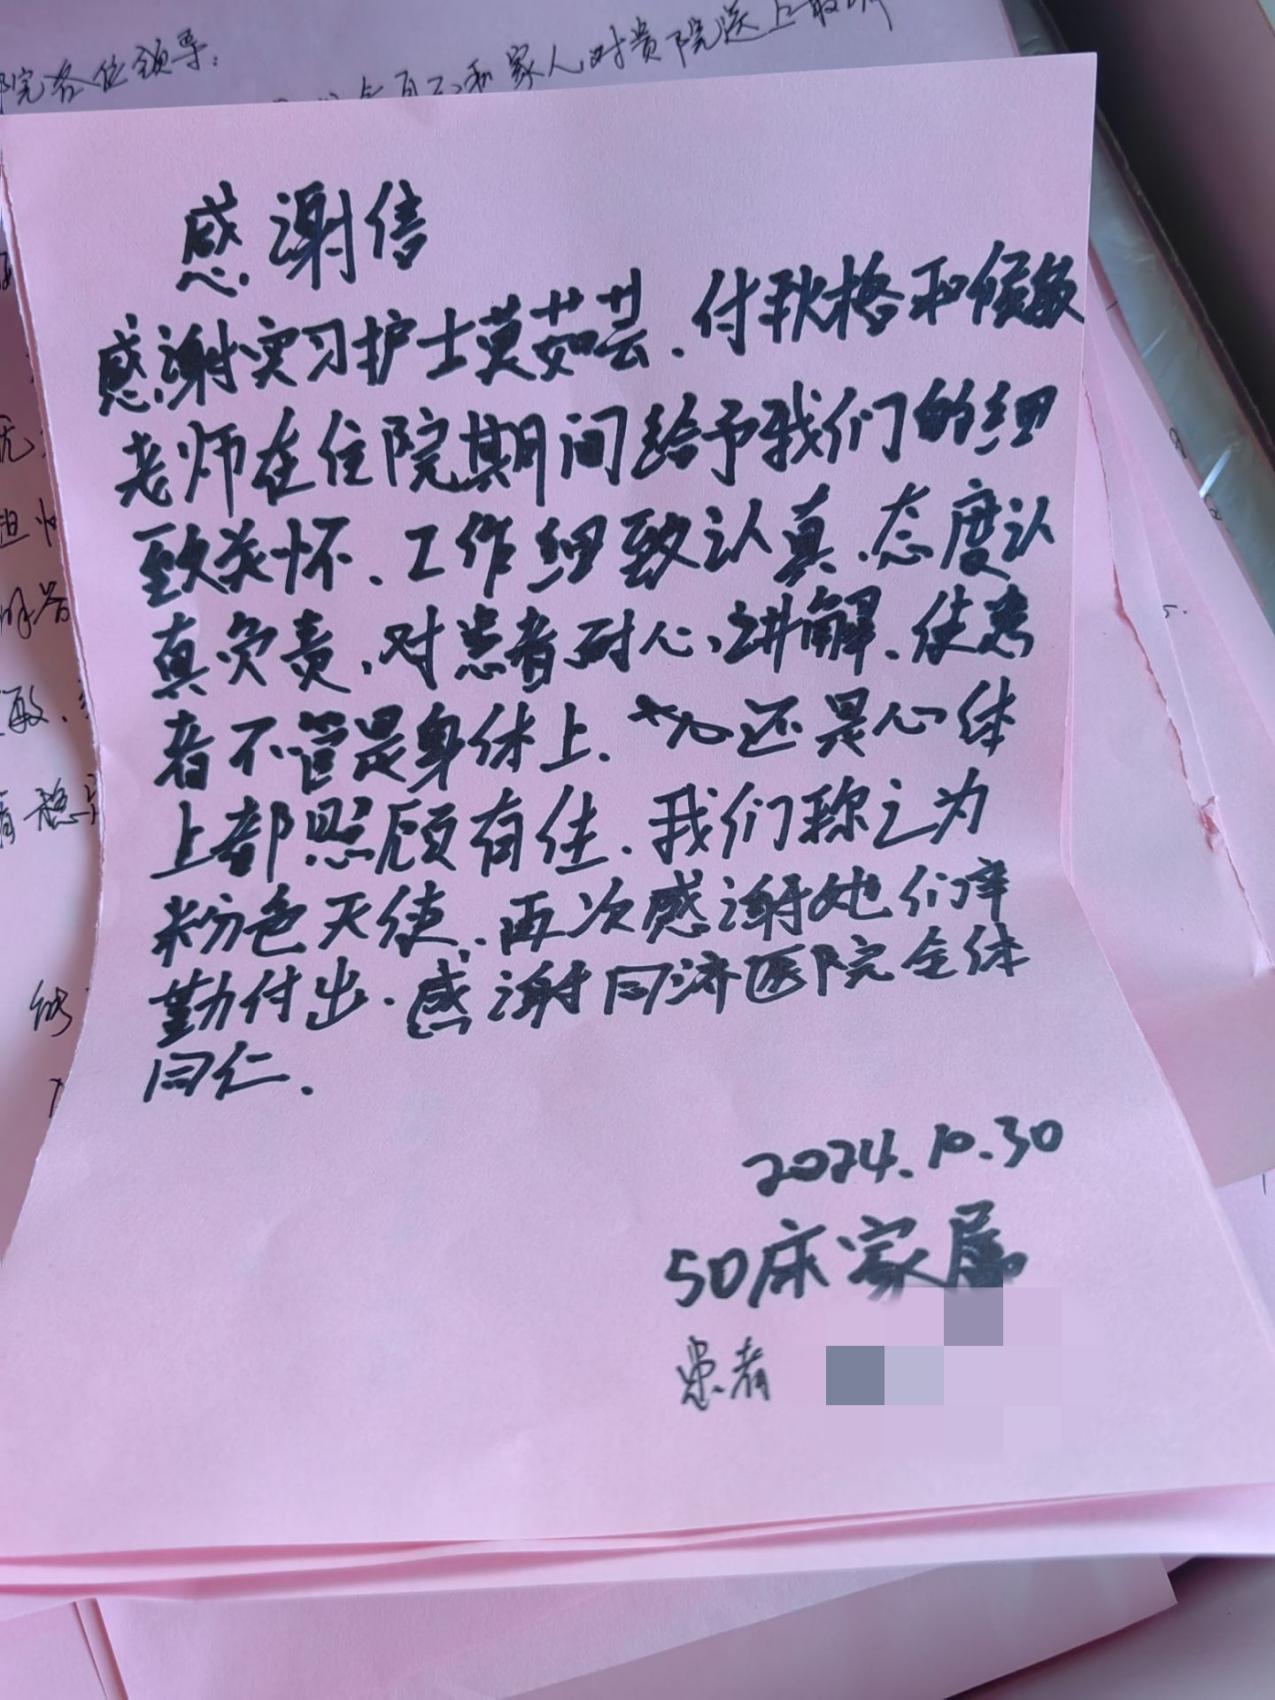 院各位领导:
和家人对贵院送上
感谢信
感谢实习护士莫茹芸、付秋格和候敏
老师在住院期间给予我们的细
致关怀、工作细致认真、态度认
真负责,对患者耐心,讲解、使患
者不管是身体上、还是心体
上都照顾有佳、我们称之为
粉色天使、再次感谢她们辛
勤付出.感谢同济医院全体
同仁.
2024.10.30
50床家属
患者